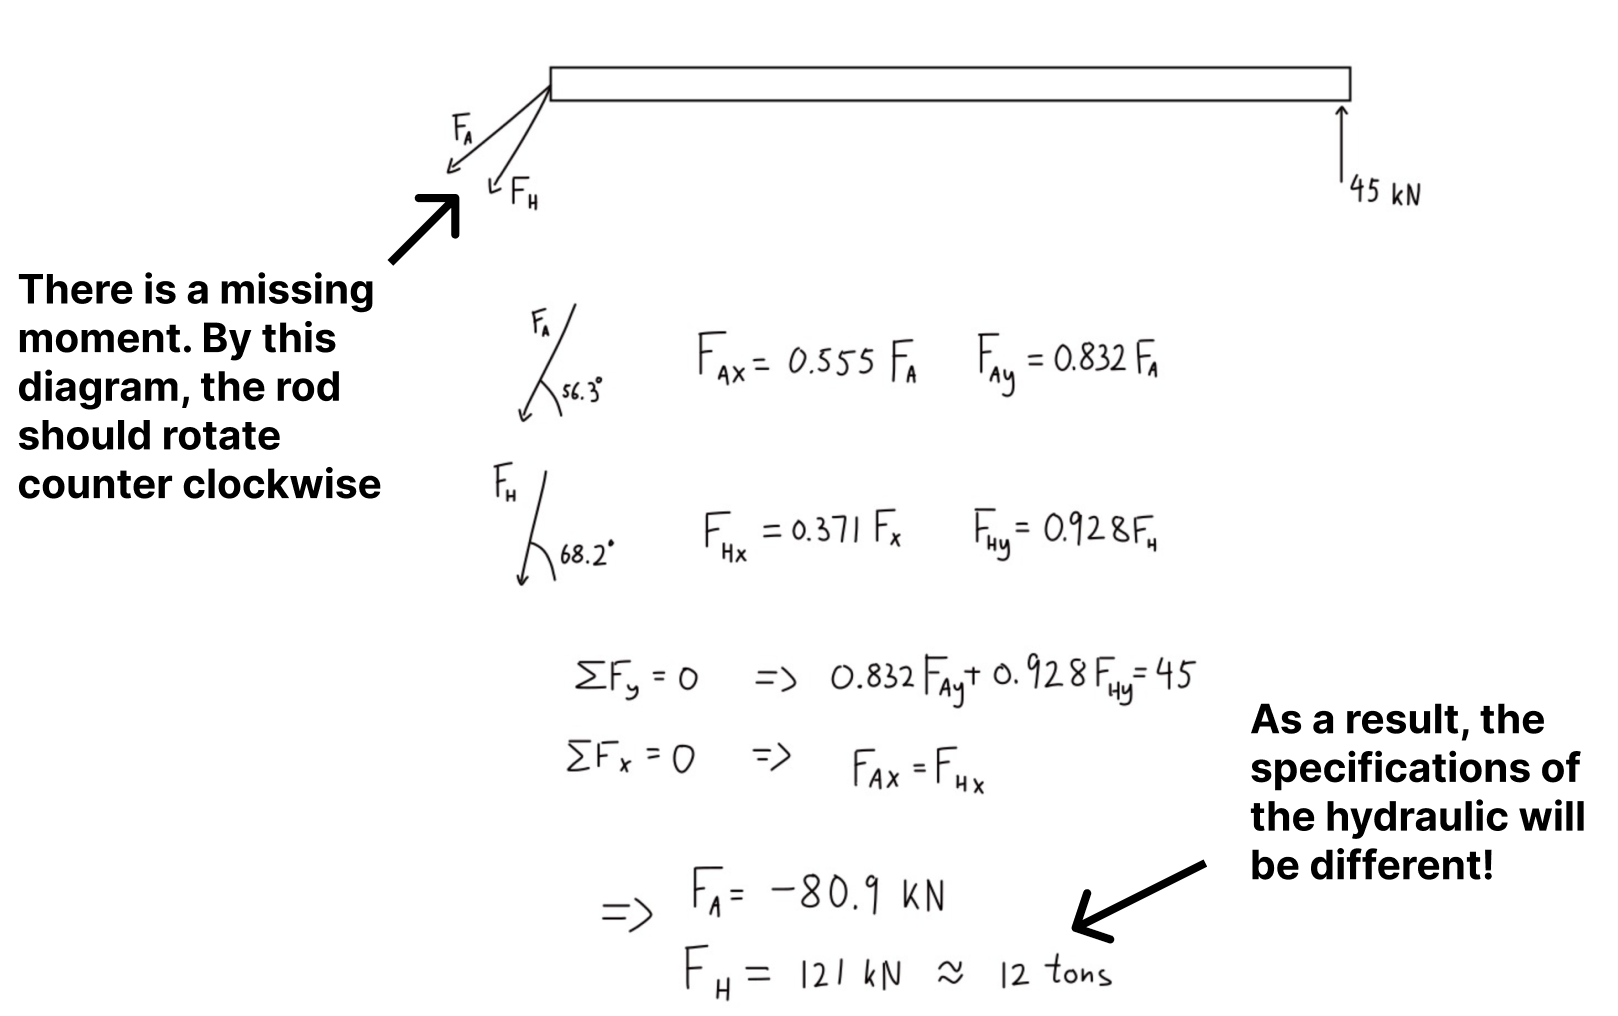 F_A
F_H
45 kN
There is a missing
moment. By this
diagram, the rod
should rotate
counter clockwise
F_A
56.3°
F_Ax = 0.555 F_A F_Ay = 0.832 F_A
F_H
68.2°
F_Hx = 0.371 F_x F_Hy = 0.928 F_H
ΣF_y = 0 => 0.832 F_Ay + 0.928 F_Hy = 45
ΣF_x = 0 => F_Ax = F_Hx
As a result, the
specifications of
the hydraulic will
be different!
=> F_A = -80.9 kN
F_H = 121 kN ≈ 12 tons